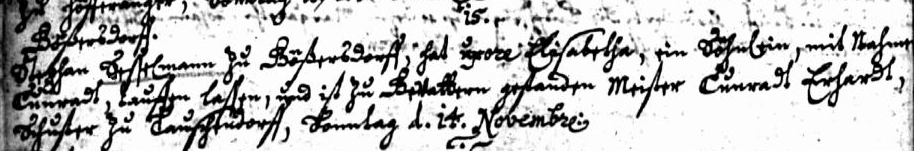 zu
15.
Bößersdorff.
Stephan Besselmann zu Bößersdorff, hat uxore Elisabetha, ein Söhnlein, mit Nahmen
Cunradt, tauffen lassen, und ist zu Gevattern gestanden Meister Cunradt Erhardt,
Schuster zu Tauschendorff, Sonntag d. 14. Novembris